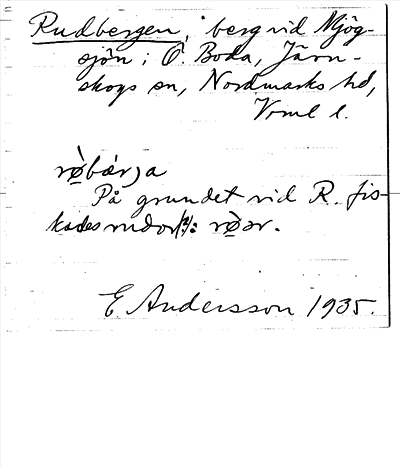 Rudbergen, berg vid Mjög-
sjön i Ö. Boda, Järn-
skogs sn, Nordmarks hd,
Vrml l.
rø̀bær̀ja
På grundet vid R. fis-
kades rudor(?): rø̀ər.
E Andersson 1935.